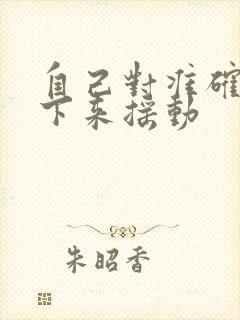 自己對准確
下来採動
朱昭香